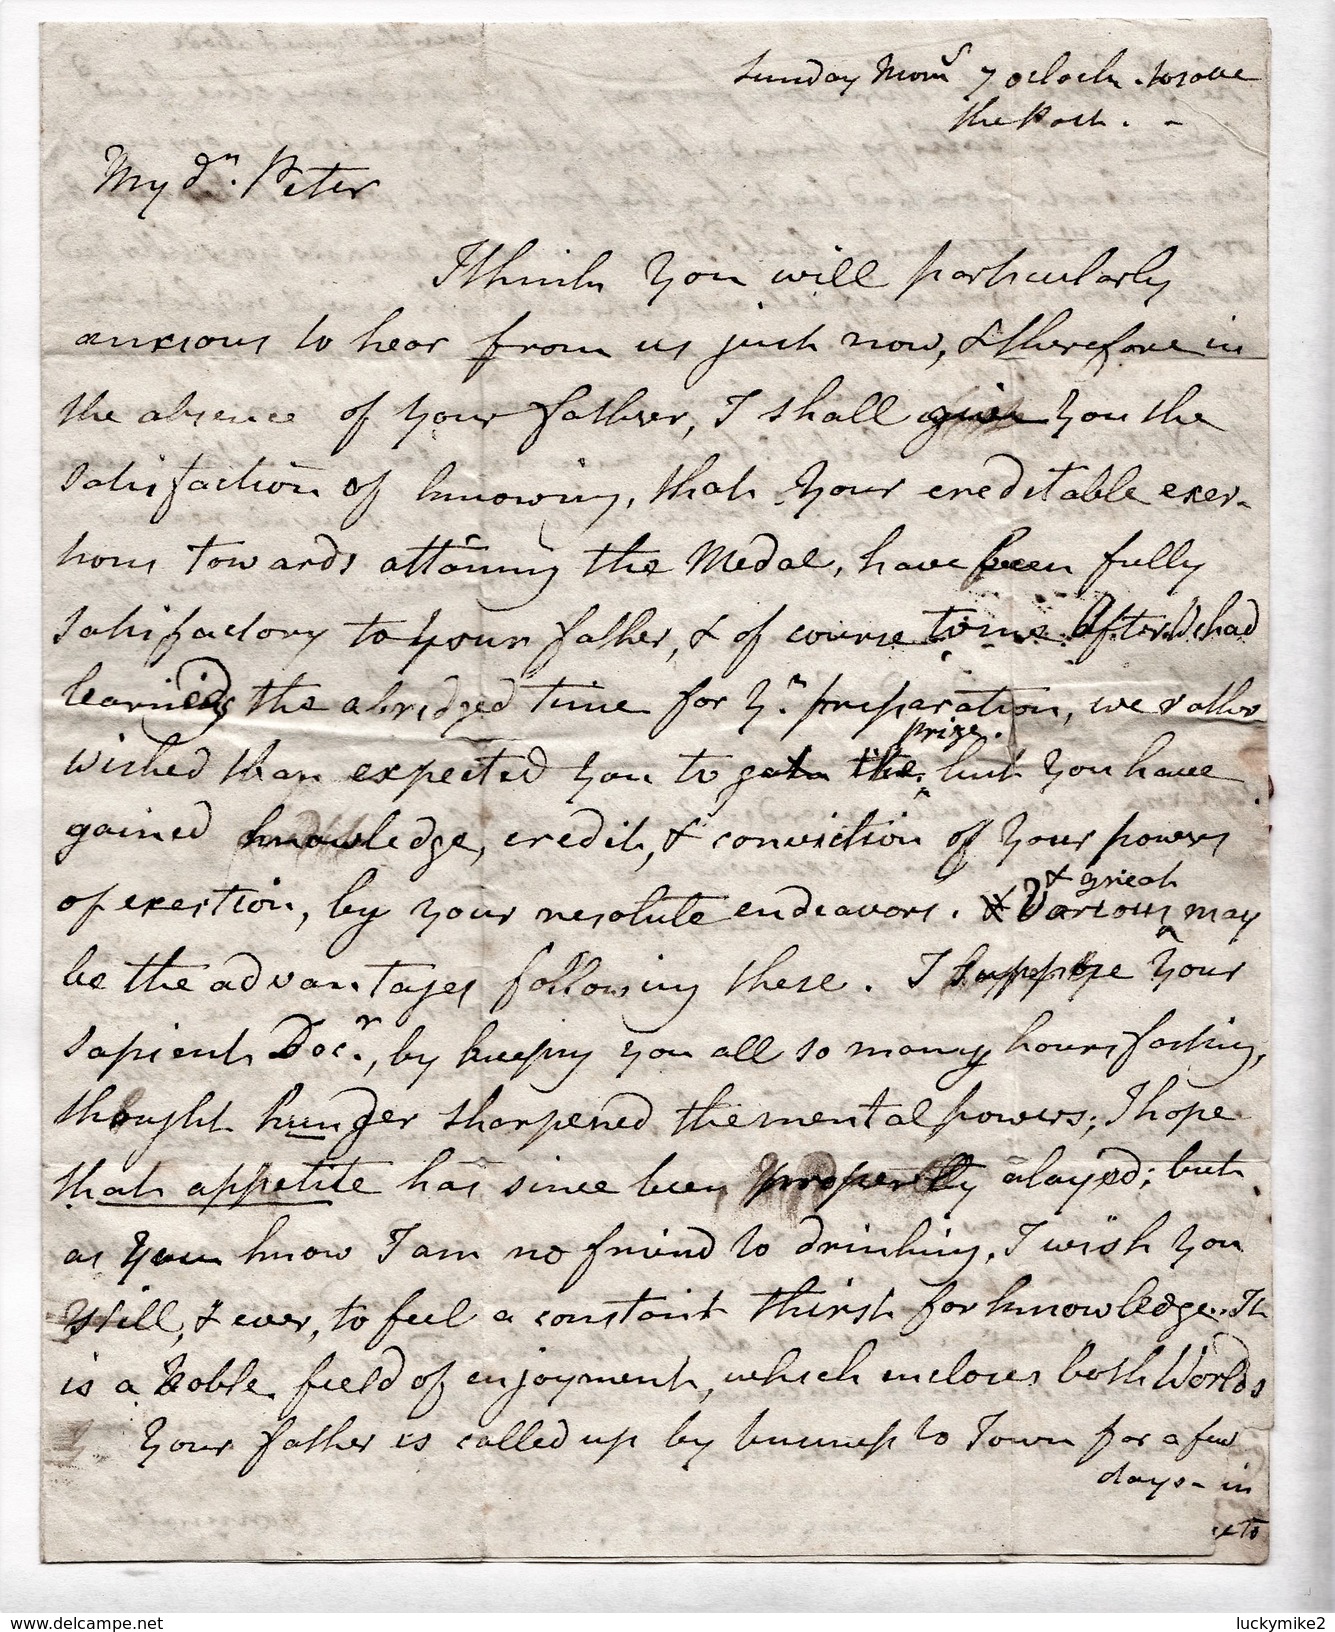 Sunday Morn^g 7 oclock to save
the Post. -
My d^r. Peter
I think you will particularly
anxious to hear from us just now, & therefore in
the absence of your father, I shall give you the
satisfaction of knowing, that your creditable exer-
tions towards attaining the Medal, have been fully
satisfactory to your father, & of course to me. After I had
learnings the abridged time for y^r. preparation, we rather
wished than expected you to gain the prize. but you have
gained knowledge, credit, & conviction of your powers
of exertion, by your resolute endeavors. & Various & great may
be the advantages following these. I suppose your
sapient Doc^r., by keeping you all so many hours fasting,
thought hunger sharpened the mental powers; I hope
that appetite has since been properly alayed; but
as you know I am no friend to drinking, I wish you
still, & ever, to feel a constant thirst for knowledge. It
is a noble field of enjoyment, which incloses both Worlds
Your father is called up by business to Town for a few
days - in
delcampe.net
luckymike2